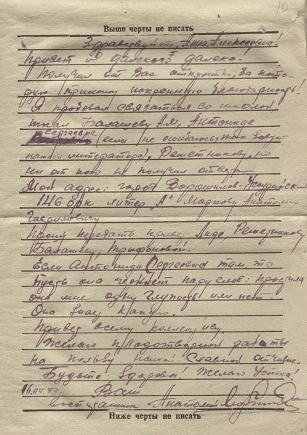 Выше черты не писать
Здравствуйте, Анна Алексеевна!
Привет из далекого далека.
Получил от Вас открытку, за кото-
рую приношу искреннюю благодарность.
Я пробовал связаться со школой
писал Балашеву А.М, Антонине
Сергеевне (если не ошибаюсь, так зовут
нашего литератора), Решетникову, но
ни от кого не получил ответ.
Мой адрес: город Ворошилов-Уссурийский
146 ОВК литер "А" Маркову Анатолию
Гавриловичу
Прошу передать привет Лиде, Решетникову
Балашеву, Трифоновой.
Если Антонина Сергеевна там, то
пусть она черкнет пару слов: простила
она мне одну глупость или нет
Она знает какую.
Привет всему коллективу
Желаю плодотворной работы
на пользу нашей Советской отчизне.
Будьте здоровы! Желаю успеха!
16.04.43 Ваш
воспитанник Анатолий
Ниже черты не писать